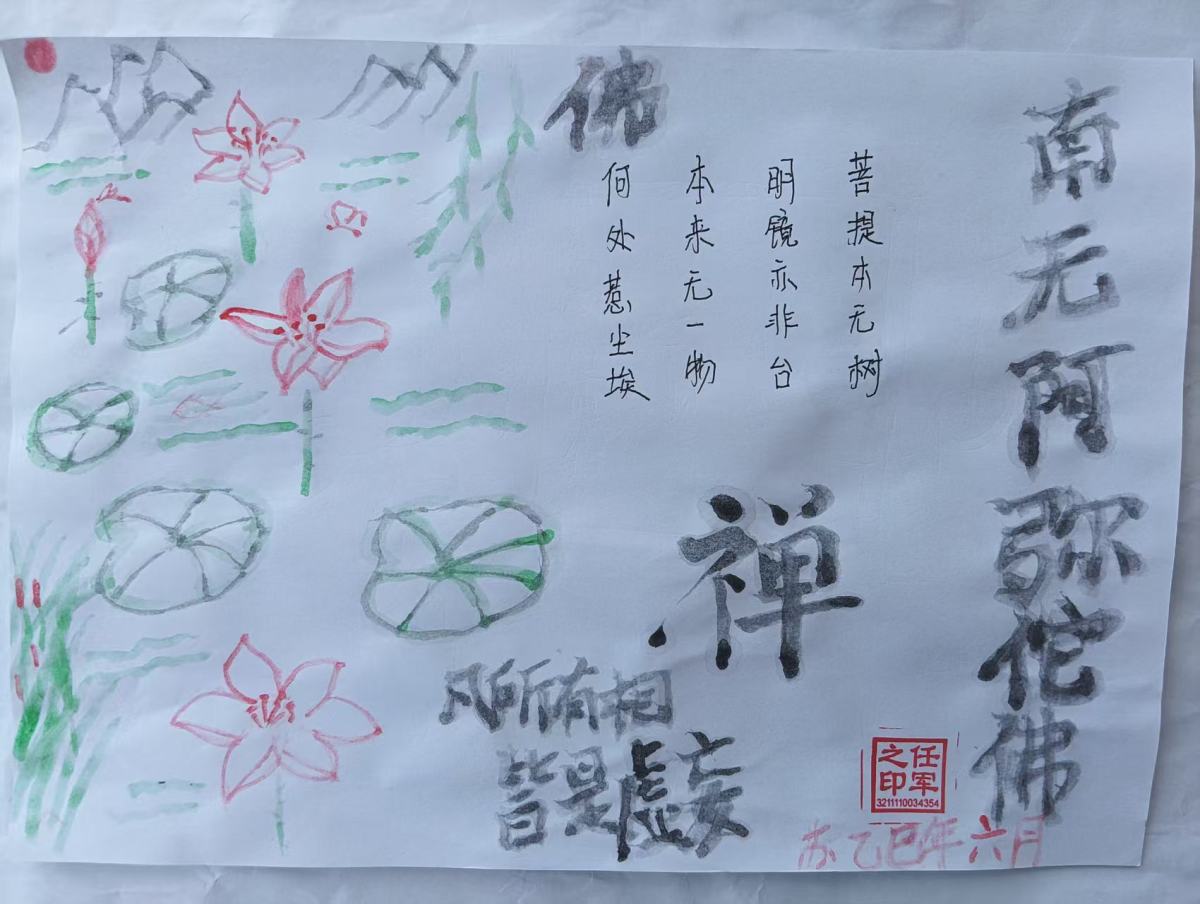 南无阿弥陀佛
佛
菩提本无树
明镜亦非台
本来无一物
何处惹尘埃
禅
凡所有相
皆是虚妄
任军之印
3211110034354
苏乙巳年六月